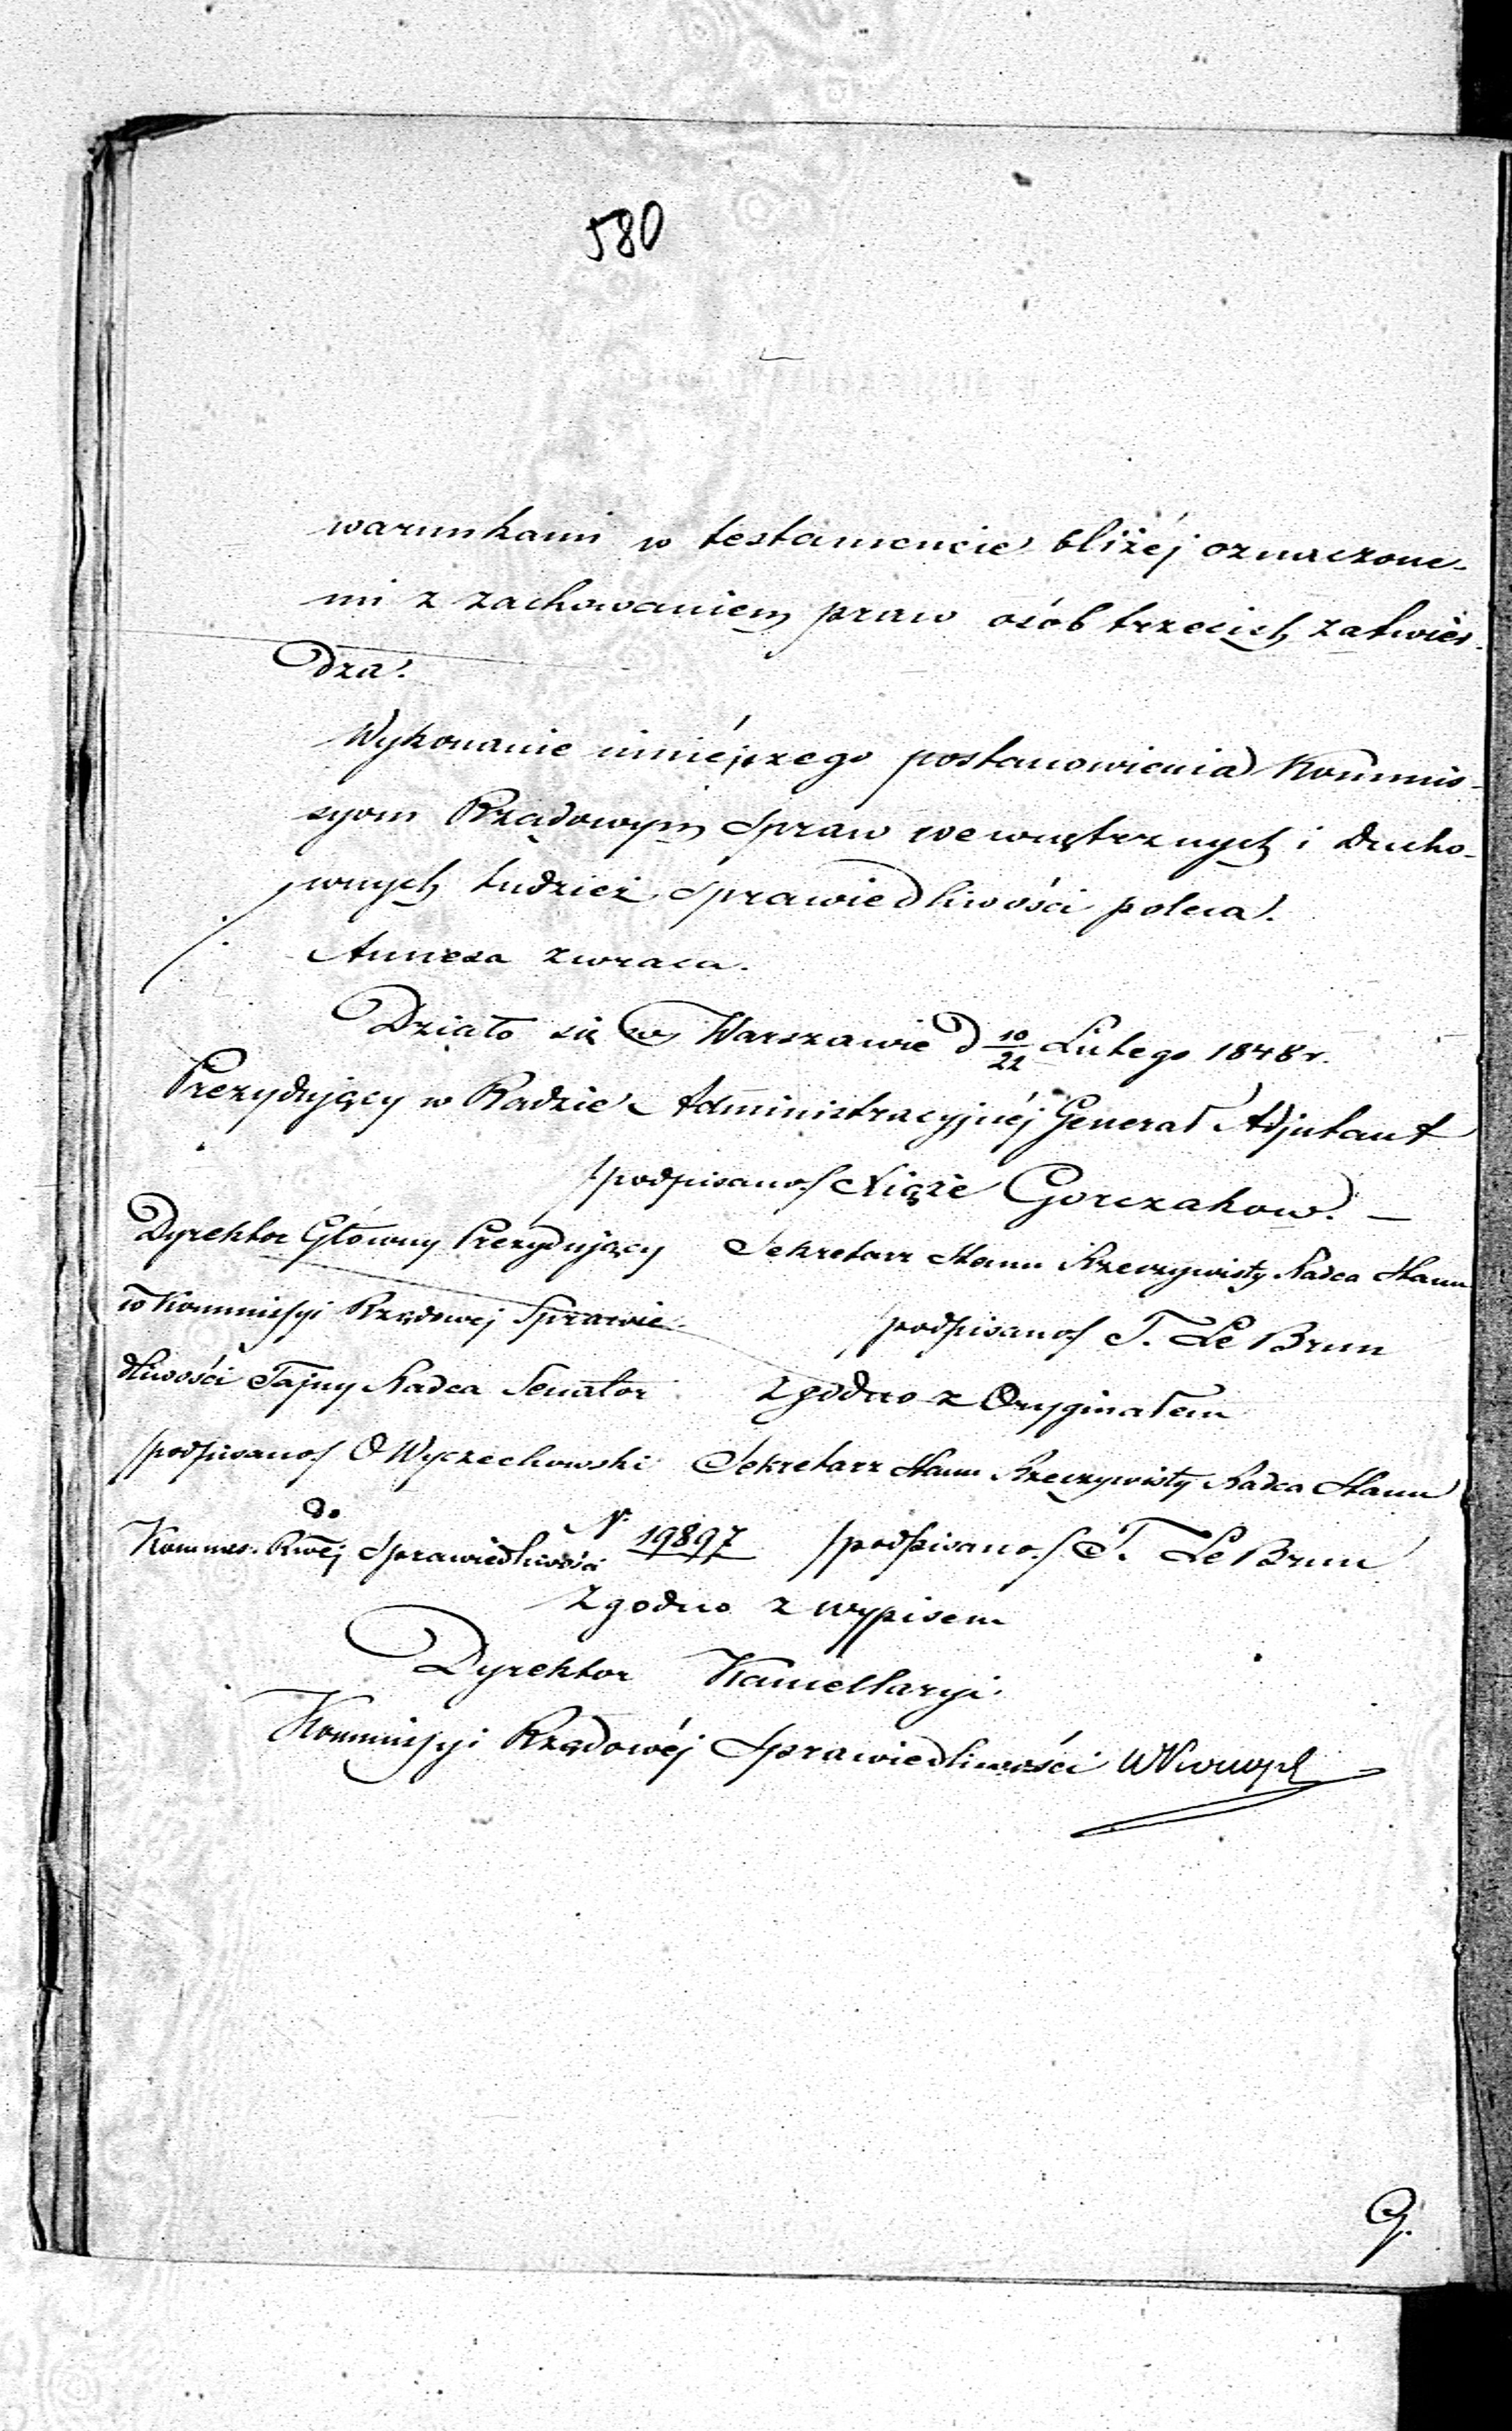 580
warunkami w testamencie bliżéj oznaczone-
mi z zachowaniem praw osób trzecich zatwier-
dza.
Wykonanie niniéjszego postanowienia Kommis-
syom Rządowym Spraw wewnętrznych i Ducho-
wnych tudzież Sprawiedliwości poleca.
Annexa zwraca.
Działo się w Warszawie d 10/22 Lutego 1848 r.
Prezydujący w Radzie Administracyjnéj Generał Adjutant
/podpisano/ Xiąże Gorczakow. —
Dyrektor Główny Prezydujący
w Kommissyi Rządowej Sprawie-
dliwości Tajny Radca Senator
/podpisano/ O Wyczechowski
Sekretarz Stanu Rzeczywisty Radca Stanu
/podpisano/ T. Le Brun
Zgodno z Oryginałem
Sekretarz Stanu Rzeczywisty Radca Stanu
/podpisano/ T. Le Brun
do
Kommis. Rwéj Sprawiedliwości N 19897
Zgodno z wypisem
Dyrektor Kancellaryi
Kommissyi Rządowéj Sprawiedliwości